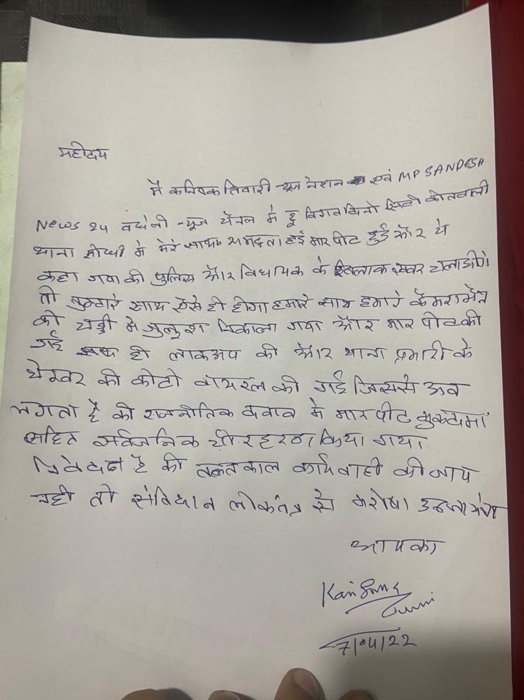 महोदय
मैं कनिष्क तिवारी न्यूज नेशन एवं MP SANDESH
News 24 बघेली न्यूज चैनल में हूं विगत दिनों सिटी कोतवाली
थाना सीधी में मेरे साथ अभद्रता हुई मारपीट हुई और ये
कहा गया की पुलिस और विधायक के खिलाफ खबर
तो तुम्हारे साथ ऐसे ही होगा हमारे साथ हमारे कैमरामैन
को चड्डी में जुलुश निकाला गया और मार पीट की
गई ही लाकअप की और थाना प्रभारी के
चेम्बर की फोटो वायरल की गई जिससे अब
लगता है की राजनीतिक दबाव में मारपीट मुकदमा
सहित सार्वजनिक चीरहरण किया गया
निवेदन है की तत्काल कार्यवाही की जाय
नही तो संविधान लोकतंत्र से भरोषा
आपका
7/04/22